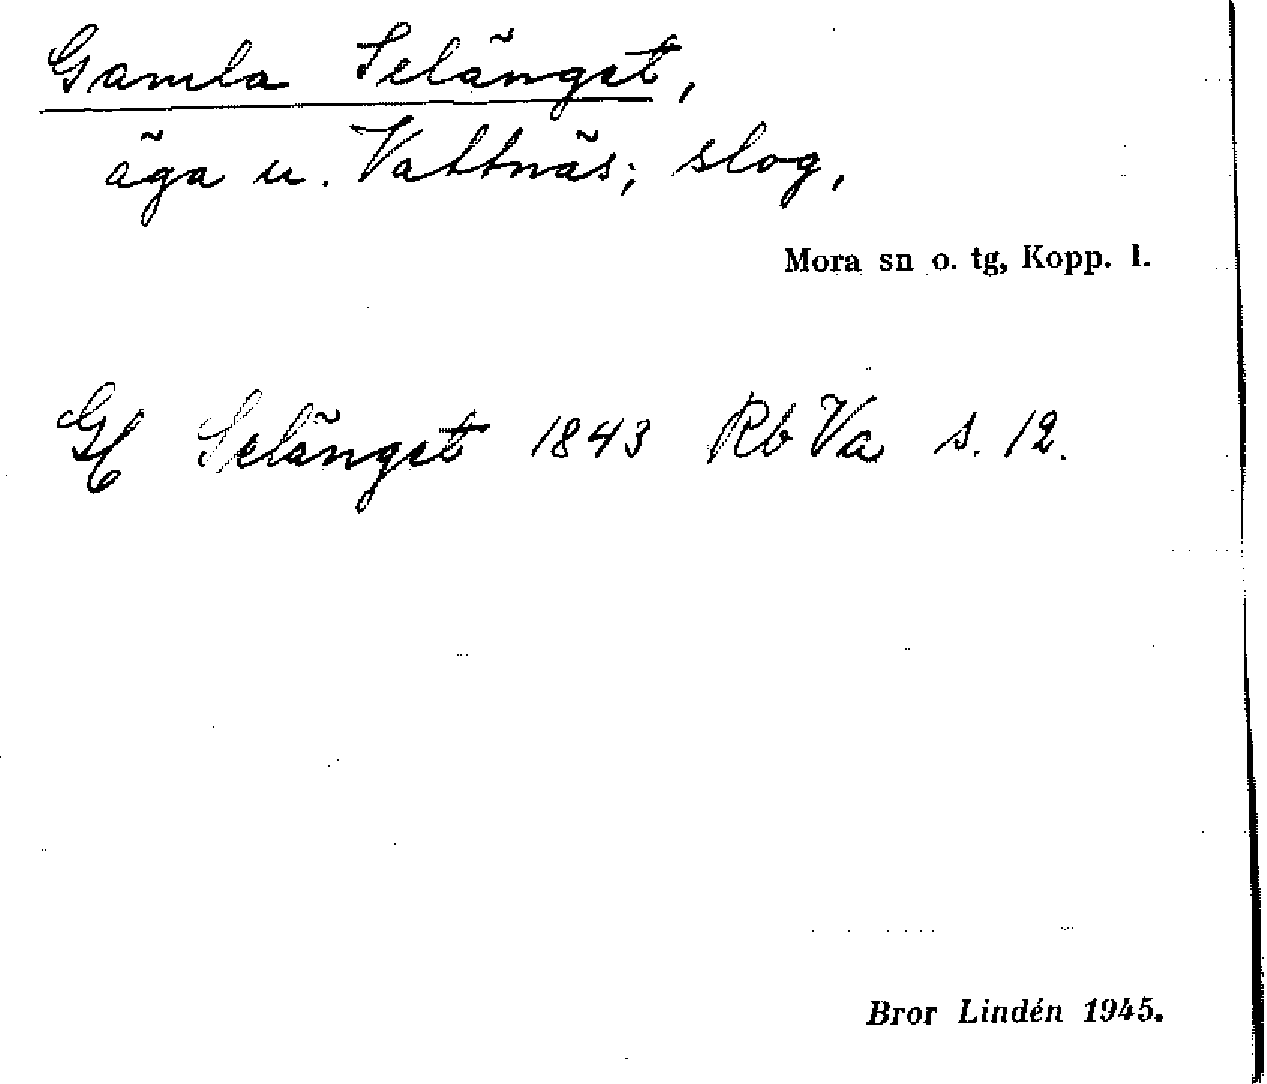 Gamla Selänget,
äga u. Vattnäs; slog,
Mora sn o. tg, Kopp. l.
Gl Selänget 1843 Rb Va s. 12.
Bror Lindén 1945.